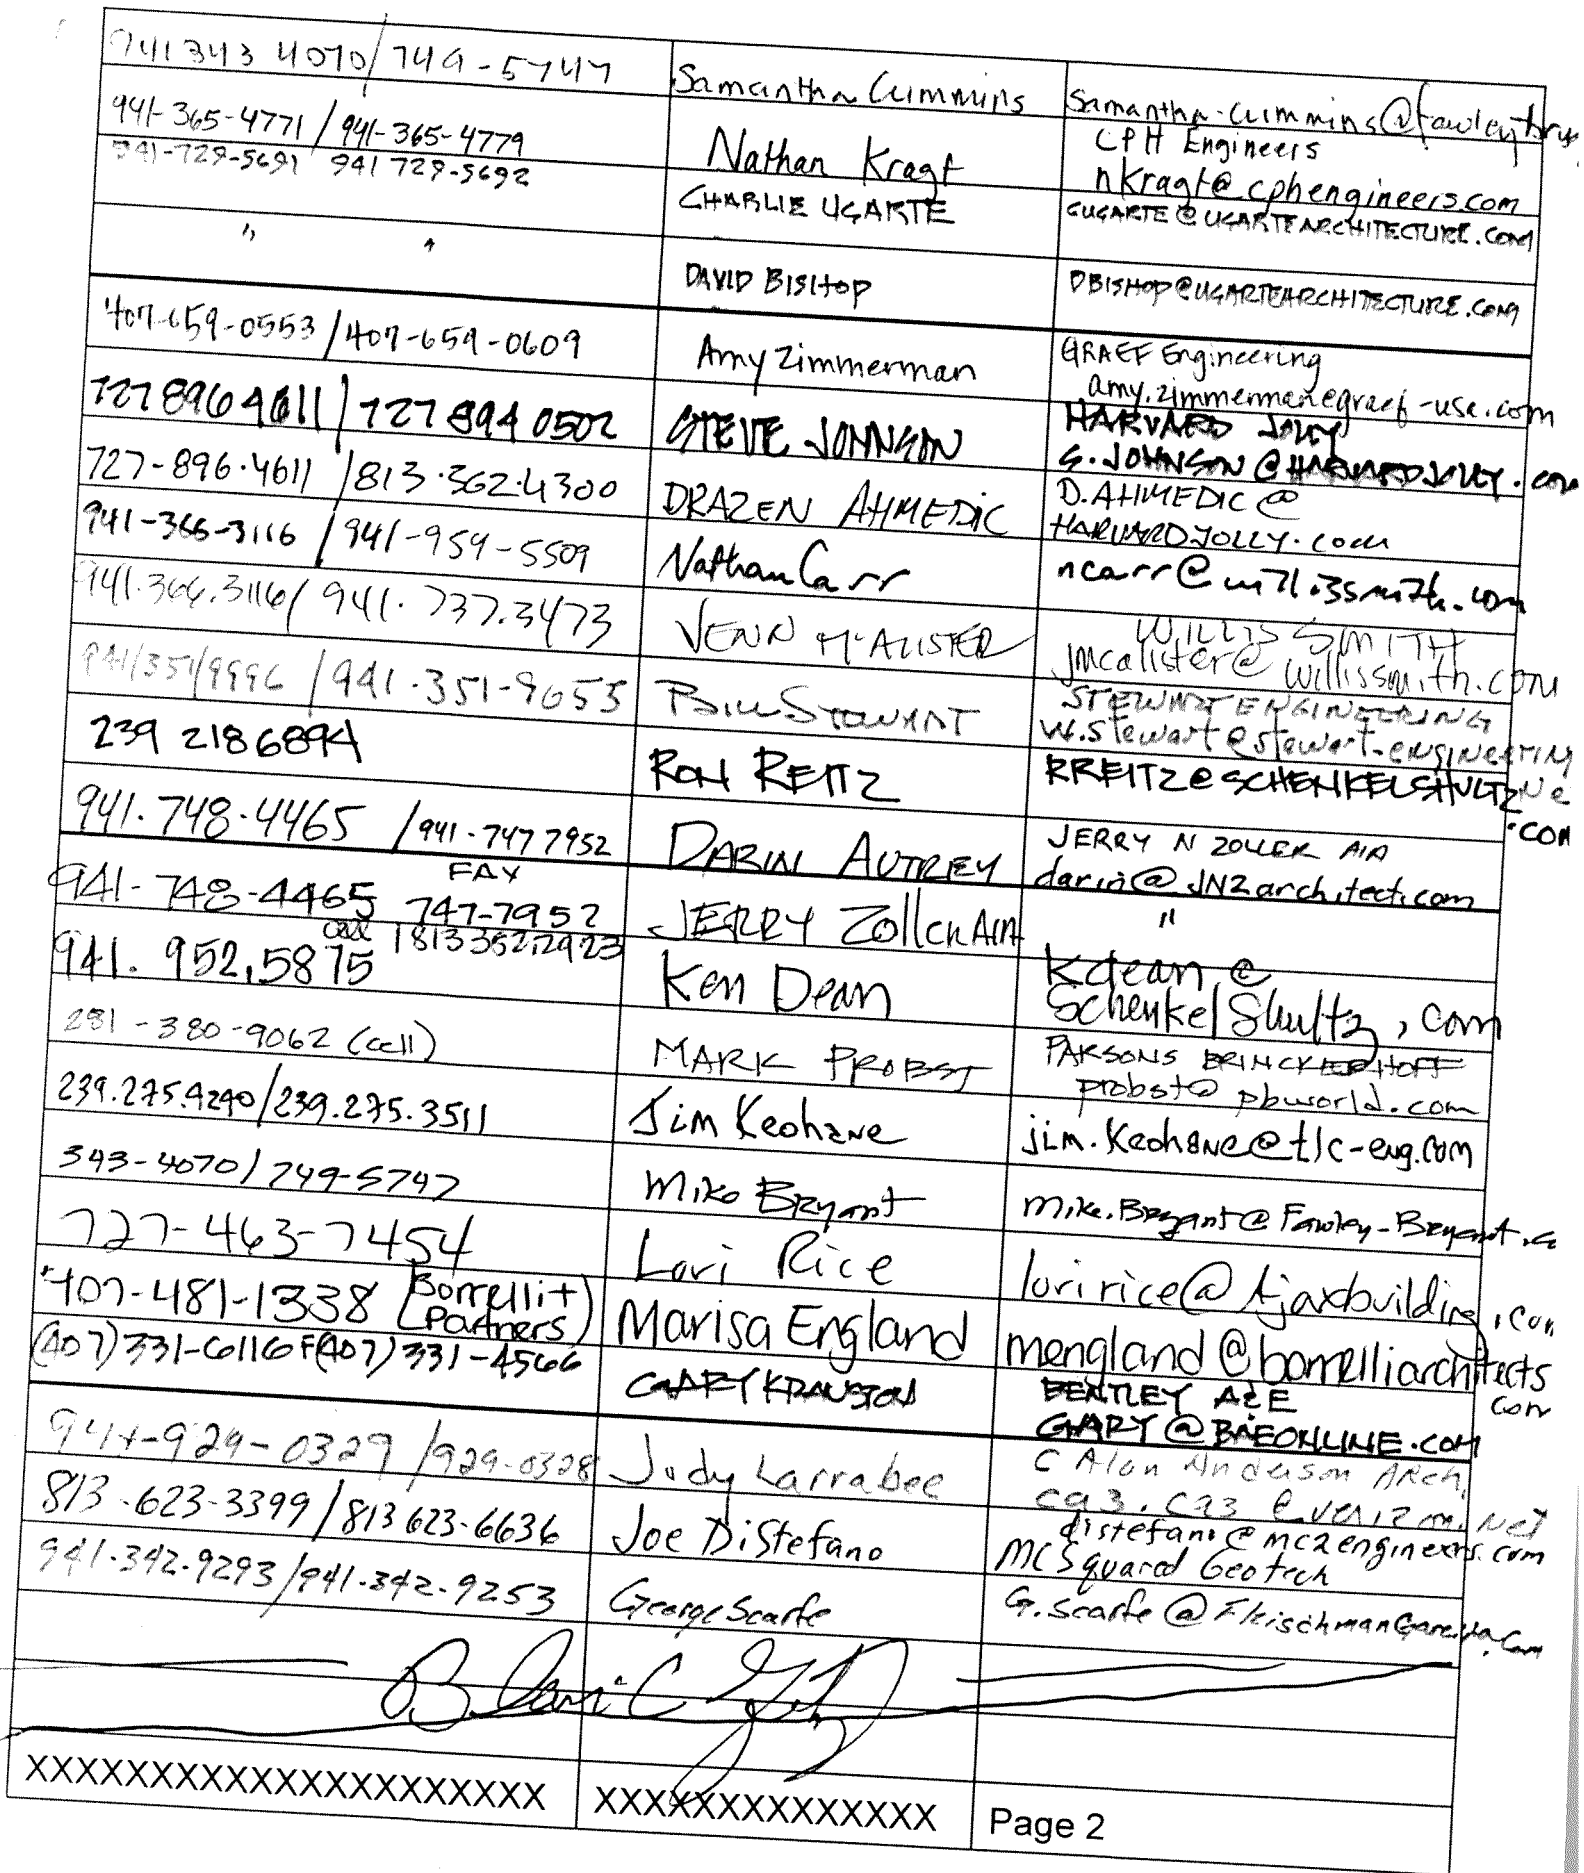 941 343 4070 / 749-5747 Samantha Cummins Samantha-Cummins@fawleybry
941-365-4771 / 941-365-4779 Nathan Kragt CPH Engineers
nkragt@cphengineers.com
941-729-5691 941 729-5692 CHARLIE UGARTE CUGARTE@UGARTEARCHITECTURE.COM
" " DAVID BISHOP DBISHOP@UGARTEARCHITECTURE.COM
407-659-0553 / 407-659-0609 Amy Zimmerman GRAEF Engineering
amy.zimmerman@graef-usa.com
727 896 4611 / 727 894 0502 STEVE JOHNSON HARVARD JOLLY
S.JOHNSON@HARVARDJOLLY.com
727-896-4611 / 813.362.4300 DRAZEN AHMEDIC D.AHMEDIC@
HARVARDJOLLY.com
941-366-3116 / 941-954-5509 Nathan Carr ncarr@willissmith.com
941.366.3116 / 941.737.3473 JENN MCALISTER WILLIS SMITH
jmcalister@willissmith.com
941/351/9996 / 941.351-9655 BILL STEWART STEWART ENGINEERING
W.Stewart@stewart-engineering
Ne
239 218 6894 RON REITZ RREITZ@SCHENKELSHULTZ
.COM
941.748.4465 / 941-747 7952 DARIN AUTREY JERRY N ZOLLER AIA
FAX darin@JNZarchitect.com
941-748-4465 747-7952 JERRY ZOLLER AIA "
941. 952.5875 cell / 813 352.2923 Ken Dean kdean@
SchenkelShultz.com
281-380-9062 (cell) MARK PROBST PARSONS BRINCKERHOFF
probst@pbworld.com
239.275.4240 / 239.275.3511 Jim Keohane jim.keohane@tlc-eng.com
343-4070 / 749-5747 Mike Bryant Mike.Bryant@Fawley-Bryant.c
727-463-7454 Lori Rice loririce@Ajaxbuilding.com
407-481-1338 (Borrelli + Partners) Marisa England mengland@borrelliarchitects
com
(407) 331-6116 F(407) 331-4566 GARY KRANSTON BENTLEY A&E
GARY@BAEONLINE.COM
941-929-0329 / 929-0328 Jody Larrabee C Alan Anderson Arch.
ca3.ca3@verizon.net
813-623-3399 / 813 623-6636 Joe DiStefano distefano@mc2engineers.com
MCSquared Geotech
941.342.9293 / 941.342.9253 George Scarfe G.Scarfe@FleischmanGarcia.com
XXXXXXXXXXXXXXXXXXXXX XXXXXXXXXXXXXX Page 2